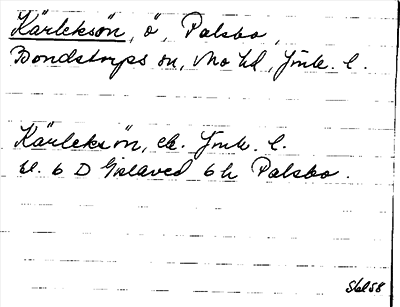 Kärleksön, ö, Palsbo,
Bondstorps sn, Mo hd, Jönk. l.
Kärleksön, ek. Jönk. l.
bl. 6 D Gislaved 6 h Palsbo.
Sbl 58